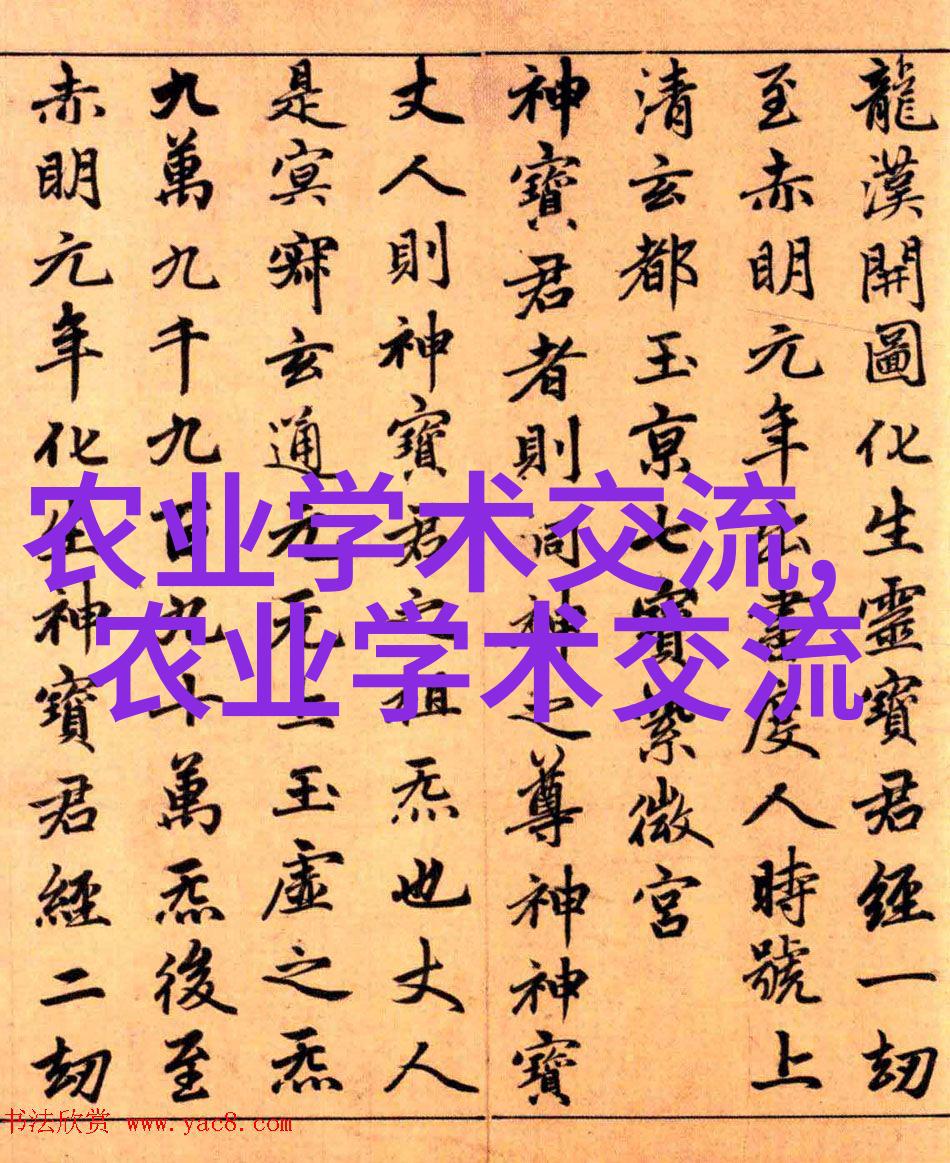 龍漢開圖化生靈寶君經一劫
至赤明元年出書度人時號上
清玄都玉京七寶紫微宮
神寶君者則洞神之尊神神寶
丈人則神寶君之祖炁也丈人
是冥寂玄通元无上玉虛之炁
九萬九千九百九十萬炁後至
赤明元年化生神寶君經二劫
农业学术交流,
农业学术交流
书法欣赏 www.yac8.com